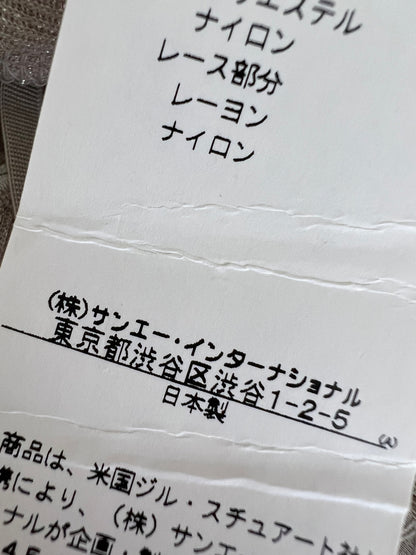 エステル
ナイロン
レース部分
レーヨン
ナイロン
(株)サンエー・インターナショナル
東京都渋谷区渋谷1-2-5
日本製
(A)
商品は、米国ジル・スチュアート社
携により、(株)サンエ
ナルが企画・製